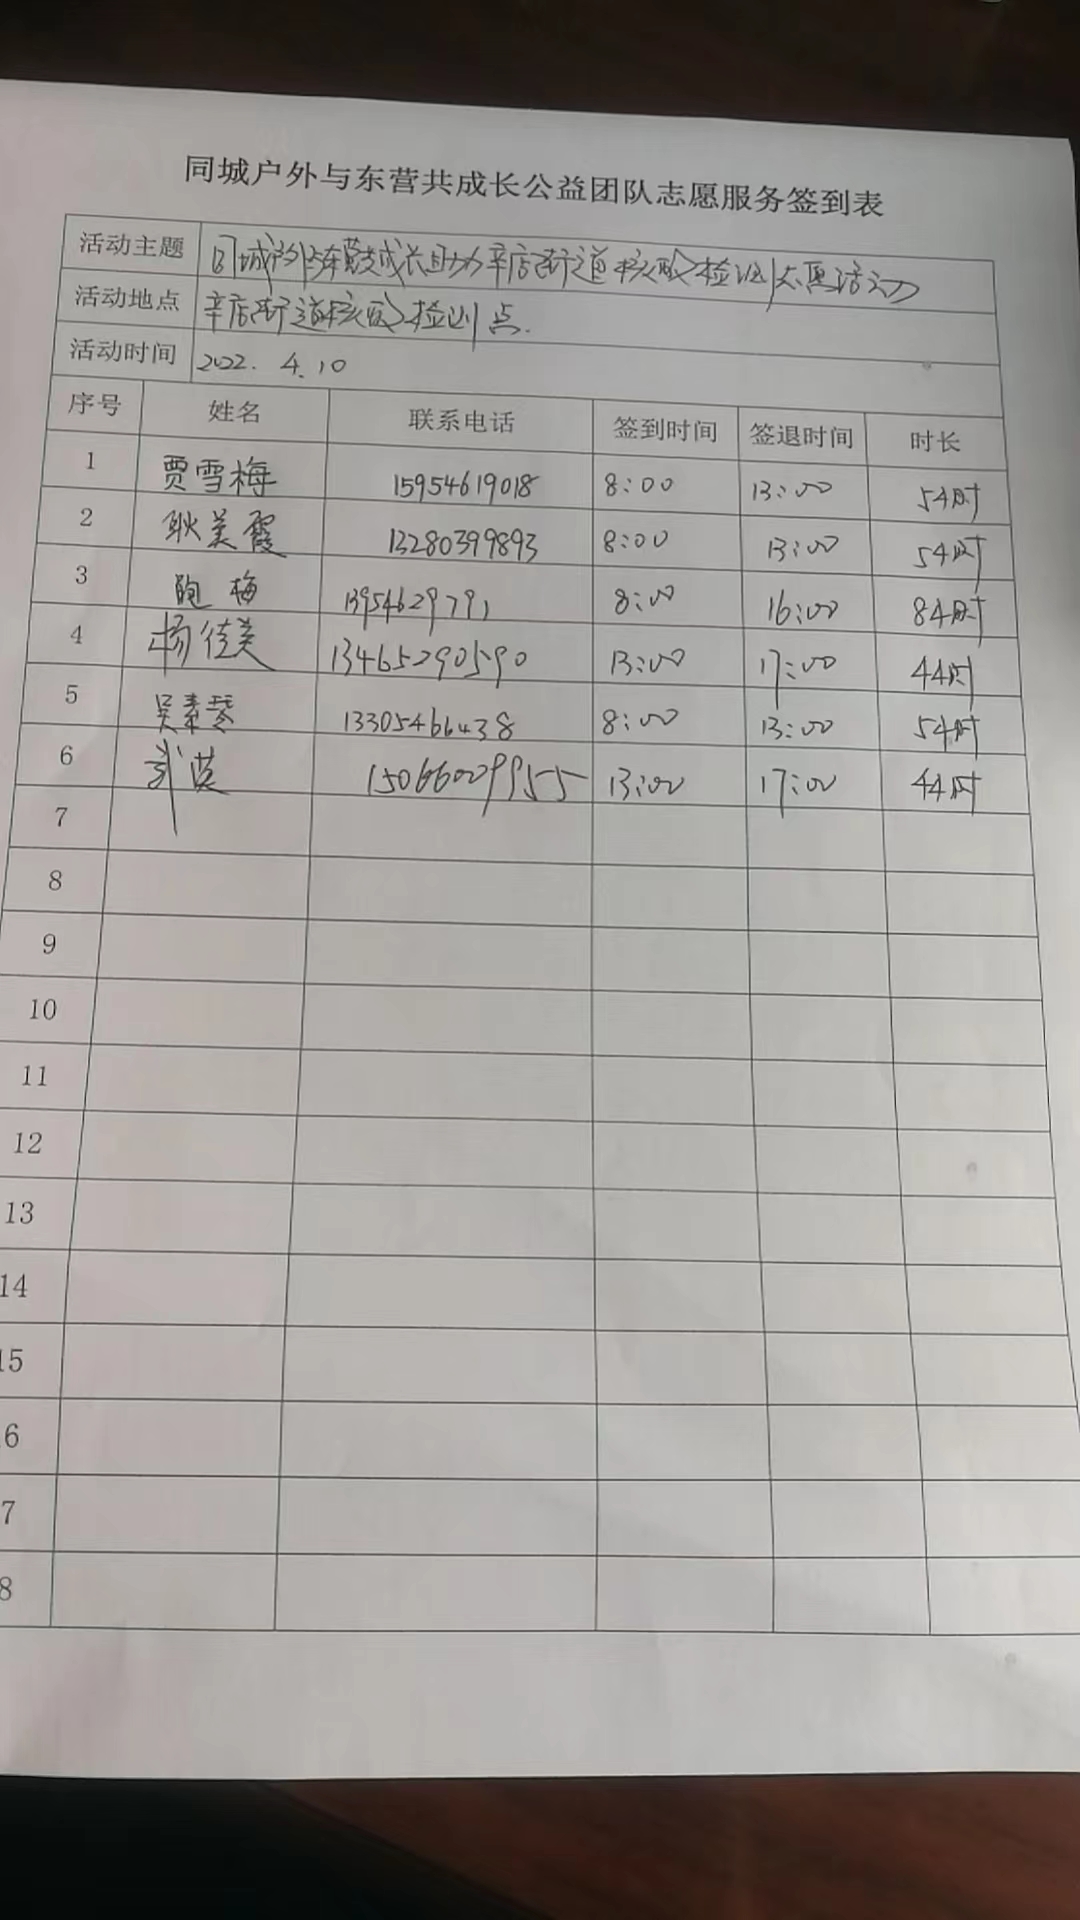 同城户外与东营共成长公益团队志愿服务签到表
活动主题 同城户外与东营共成长助力辛店街道核酸检测志愿活动
活动地点 辛店街道核酸检测点.
活动时间 2022. 4.10
序号 姓名 联系电话 签到时间 签退时间 时长
1 贾雪梅 15954619018 8:00 13:00 5小时
2 耿美霞 13280399893 8:00 13:00 5小时
3 鲍梅 13954629791 8:00 16:00 8小时
4 杨佳美 13465290590 13:00 17:00 4小时
5 吴素琴 13305466438 8:00 13:00 5小时
6 武英 15066009955 13:00 17:00 4小时
7
8
9
10
11
12
13
14
15
6
7
8